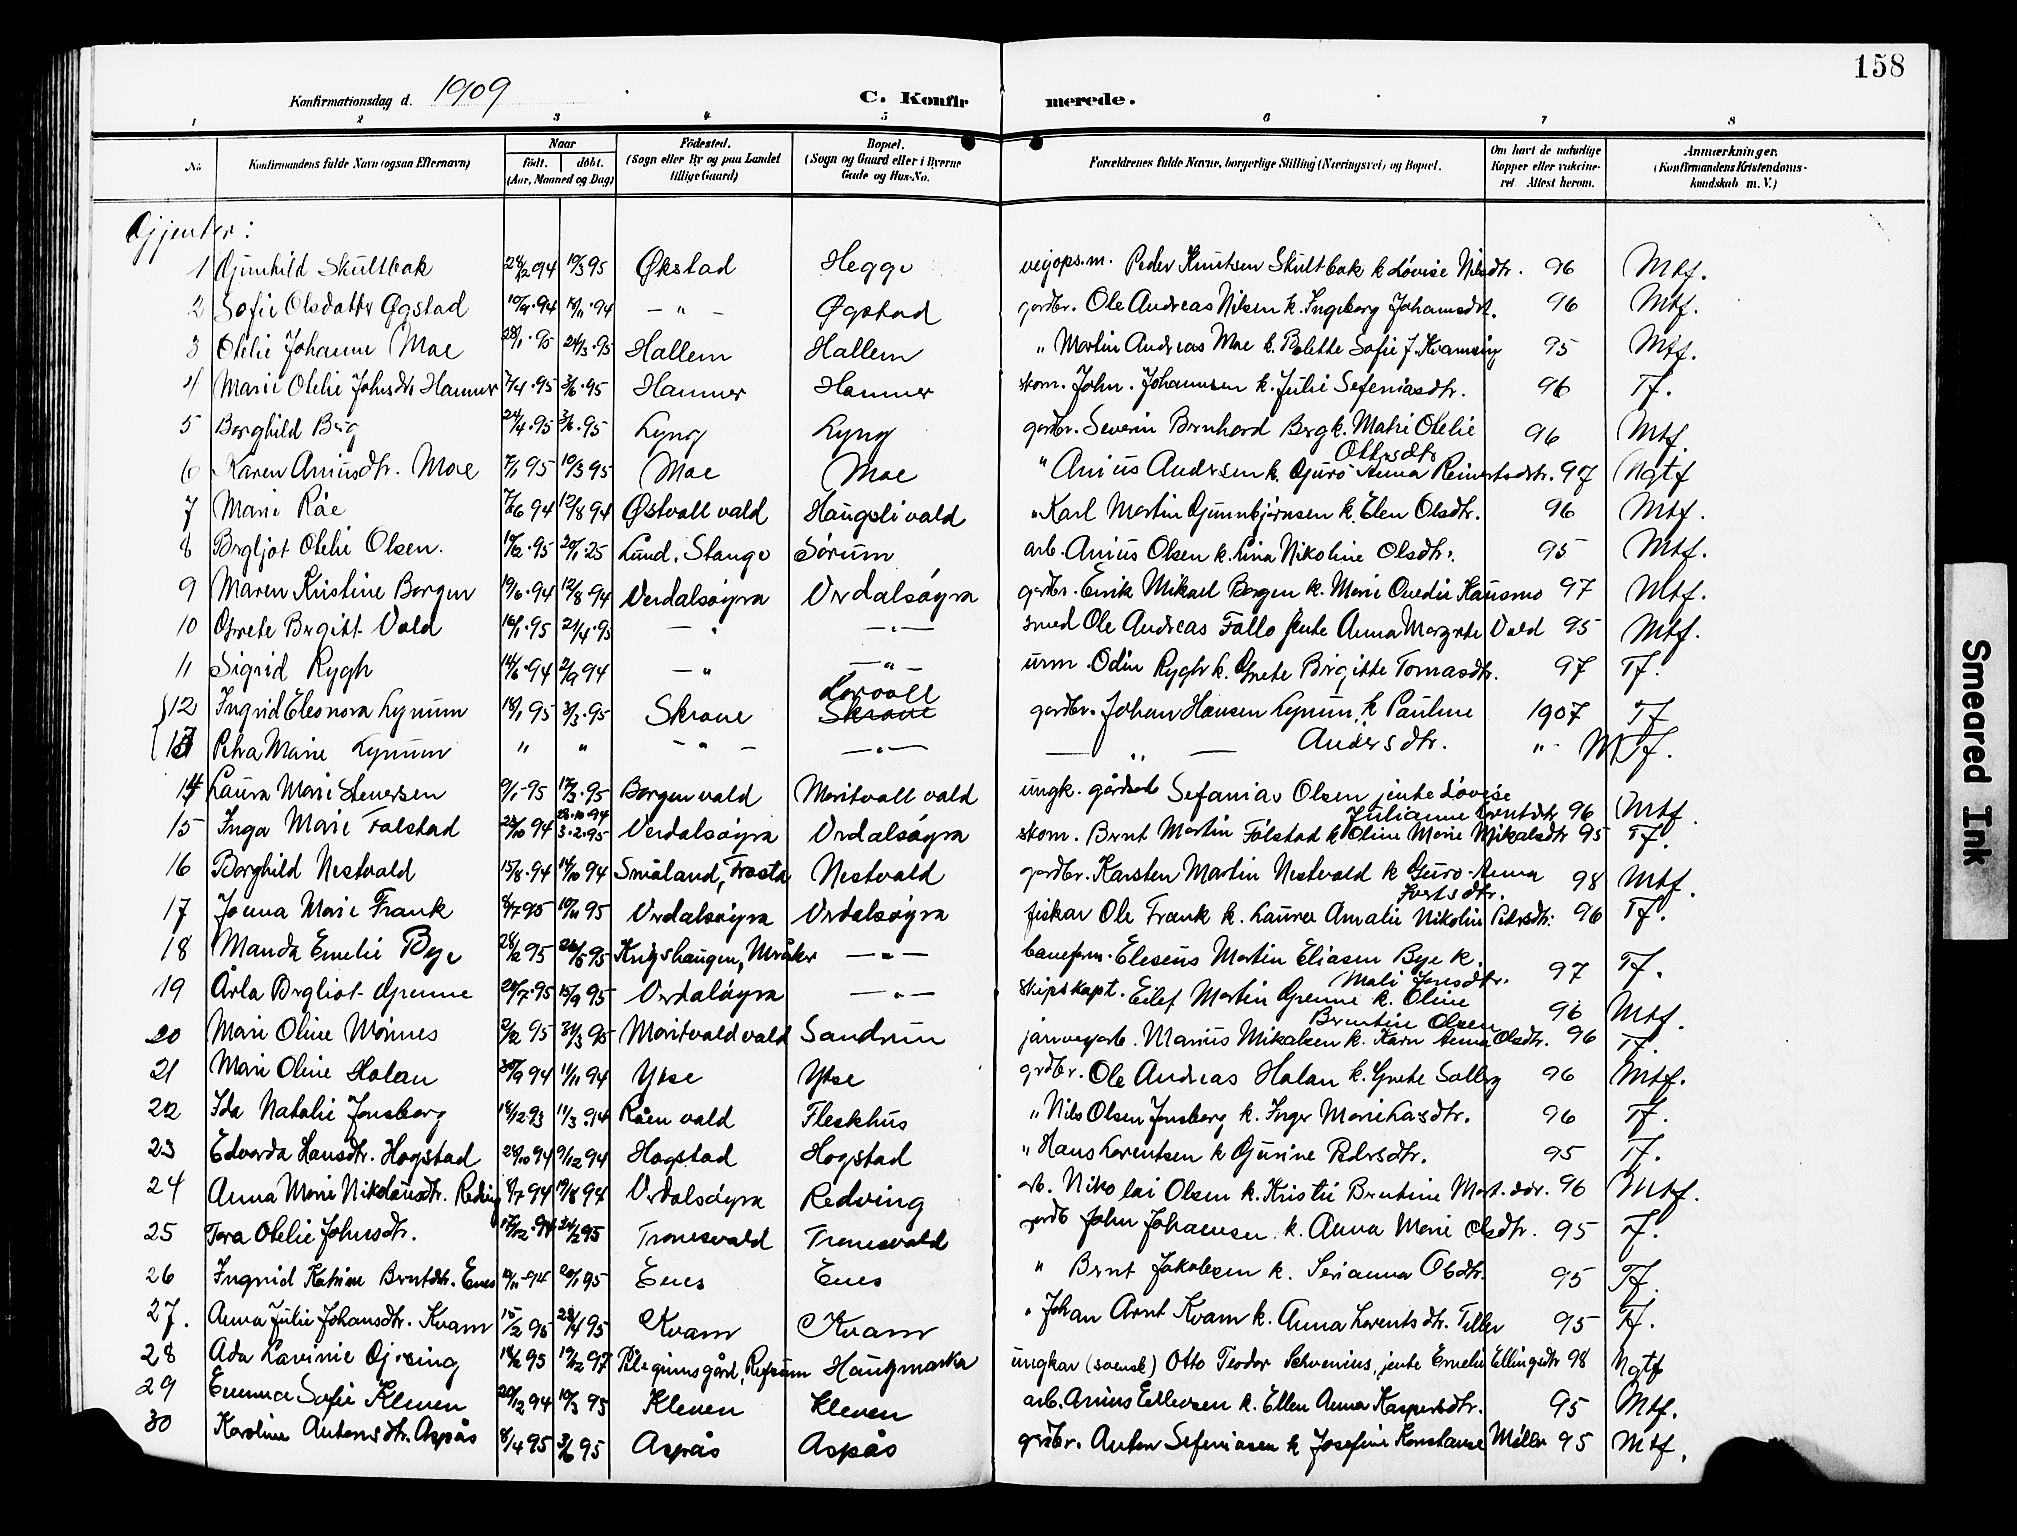 158
Konfirmationsdag d. 1909
C. Konfirmerede.
1 2 3 4 5 6 7 8
No
Konfirmandens fulde Navn (ogsaa Efternavn)
Naar
født. døbt.
(Aar, Maaned og Dag)
Fødested.
(Sogn eller By og paa Landet
tillige Gaard)
Bopæl.
(Sogn og Gaard eller i Byerne
Gade og Hus-No.
Forældrenes fulde Navne, borgerlige Stilling (Næringsvei) og Bopæl.
Om havt de naturlige
Kopper eller vakcine-
ret Attest herom.
Anmærkninger.
(Konfirmandens Kristendoms-
kundskab m. V.)
Gjenter:
1 Gunhild Skultbak 24/2 94 10/3 95 Økstad Hegge veiops.m. Peder Knutsen Skultbak k Lovise Nilsdtr. 96 Mtf.
2 Sofie Olsdatter Øgstad 10/9.94 18/11.94 — " — Øgstad gordbr. Ole Andreas Nilsen k. Ingeborg Johannsdtr. 96 Mtf.
3 Otelie Johanne Moe 28/1.95 24/3.95 Hallem Hallem " Martin Andreas Moe k. Bolette Sofie J. Kvamsing 95 Mtf.
4 Marie Otelie Johnsdtr Hammer 7/4.95 3/6.95 Hammer Hammer skom. John Johannesen k. Julie Sefeniasdtr. 96 Tf.
5 Borghild Berg 24/4.95 3/6.95 Lyng Lyng gordbr. Severin Bernhard Berg k. Matie Otelie Ottersdtr 96 Mtf.
6 Karen Aniusdtr. Moe 7/1 95 10/3 95 Moe Moe " Anius Andersen k. Guro Anna Reinertsdtr. 97 Ngtf
7 Marie Råe 7/6 94 12/8 94 Østvoll vald Haugslivald " Karl Martin Gunnbjørnsen k. Elen Olsdtr. 96 Mtf.
8 Bergljot Otelie Olsen. 20/1.25 Lund, Stange Sørum arb. Anius Olsen k. Lina Nikoline Olsdtr. 95 Mtf.
9 Maren Kristine Borgen 19/6.94 12/8.94 Verdalsøyra Verdalsøyra gordbr. Eirik Mikael Borgen k. Marie Ovedie Hausmo 97 Mtf.
10 Grete Bergitt Vald 16/1.95 21/4.95 — " — — " — smed Ole Andreas Fallo jente Anna Margrete Vald 95 Mtf.
11 Sigrid Rygh 14/6.94 2/9 94 — " — " — urm. Odin Rygh k. Grete Birgitte Tomasdtr. 97 Tf.
12 Ingrid Eleonora Lynum 18/1 95 3/3.95 Skrove Skrove gordbr. Johan Hansen Lynum k Pauline Andersdtr. 1907 Tf
13 Petra Marie Lynum " " — " — — " — — " — " Mtf.
14 Laura Marie Stenersen 9/1-95 17/3.95 Borgen vald Moritvoll vald ungk. Sefanias Olsen jente Lovise Julianne 96 Mtf.
15 Inga Marie Folstad 23/10 94 28.10.94 3.2.95 Verdalsøyra Verdalsøyra skom. Bernt Martin Folstad k Oline Marie Mikalsdtr 95 Tf.
16 Borghild Nestvold 15/8.94 14/10 94 Småland, Frosta Nestvold gordbr. Karsten Martin Nestvold k Guro Anna Ivertsdtr. 98 Mtf.
17 Jonna Marie Frank 8/7 95 10/11 95 Verdalsøyra Verdalsøyra fiskar Ole Frank k. Laurea Amalie Nikoline Pedersdtr. 96 Tf.
18 Manda Emelie Bye 24/2 95 26/5 95 Meråker — " — baneform. Eleseus Martin Eliasen Bye k. Mali Jonsdtr. 97 Tf.
19 Årla Bergliot Grenne 20/7.95 15/9 95 Verdaløyra — " — skipskapt. Eilef Martin Grenne k. Oline Berntine Olsen 96 Mtf.
20 Marie Oline Monnes 2/2 95 31/3 95 Moritvold vald Sandrun jarnvegarb. Marius Mikalsen k. Karen Anna Olsdtr. 96 Tf.
21 Marie Oline Holan 30/9 94 11/11 94 Ytse Ytse grdbr. Ole Andreas Holan k. Grete Solberg 96 Mtf.
22 Ida Natalie Jonsborg 18/12 93 11/3.94 Råen vald Fleskhus " Nils Olsen Jonsborg k. Inger Marie Larsdtr. 96 Tf.
23 Edvarda Hansdtr. Hogstad 24/10 94 9/12 94 Hogstad Hogstad " Hans Lorentsen k Gurine Pedersdtr. 95 Tf.
24 Anna Marie Nikolausdtr. Reding 8/7 94 19/8 94 Verdalsøyra Redving arb. Nikolai Olsen k. Kristie Berntine Mort.ddr. 96 Mtf.
25 Tora Otelie Johnsdtr. 17/12.94 24/2 95 Tronesvald Tronesvald gordb John Johannesen k. Anna Marie Olsdtr. 95 Tf.
26 Ingrid Katrine Berntdtr. Enes 19/11.94 20/1 95 Enes Enes " Bernt Jakobsen k. Serianna Olsdtr. 95 Tf.
27. Anna Julie Johansdtr. Kvam 15/2 95 28/4 95 Kvam Kvam " Johan Arnt Kvam k. Anna Lorentsdtr. Teller 95 Tf.
28 Ada Lavinie Gjersing 18/2 95 19/12 97 Pilegrimsgård, Refsum Haugmarka ungkar (svensk) Otto Teodor Schvenius, jente Emelie Ellingsdtr 98 Ngtf
29 Emma Sofie Kleven 20/12 94 10/3 95 Kleven Kleven arb. Anius Edlevsen k. Ellen Anna Kaspersdtr. 95 Mtf.
30 Karoline Antonsdtr. Aspås 8/4 95 3/6 95 Aspås Aspås grdbr. Anton Sefeniasen k Josefine Konstanse Møller 95 Mtf.
Smeared Ink